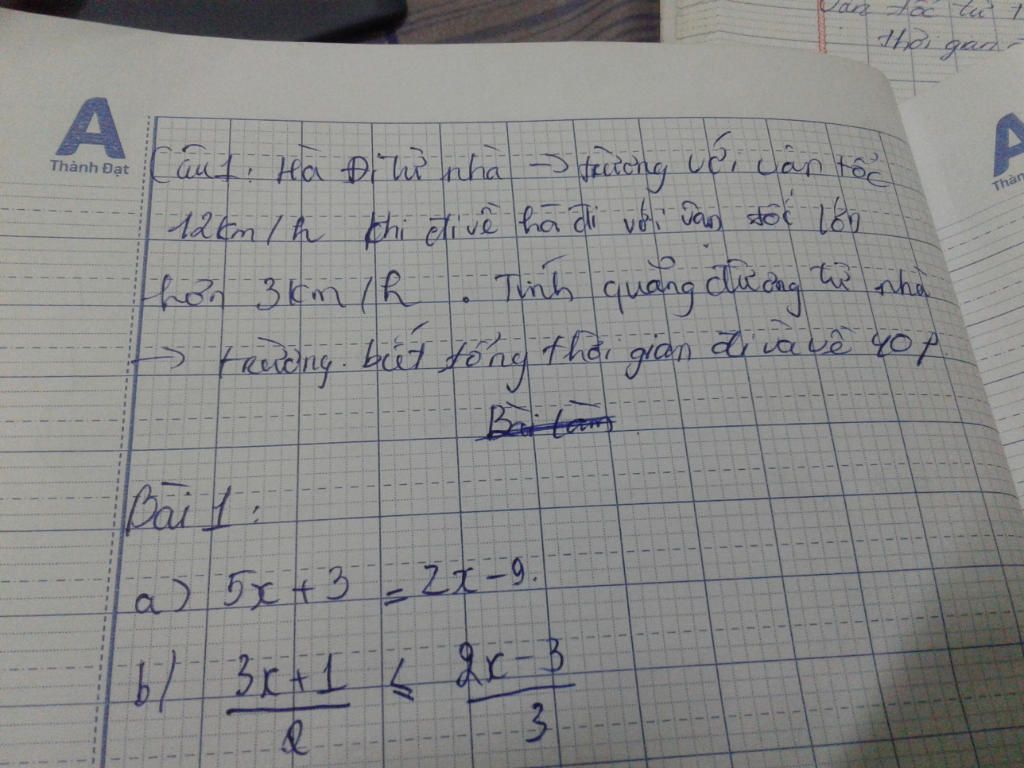 vận tốc từ 1
thời gian
A
Thành Đạt
Câu 1: Hà Đi từ nhà → trường với vận tốc
12km/h khi đi về hà đi với vận tốc lớn
hơn 3km/h. Tính quảng đường từ nhà
→ trường. biết tổng thời gian đi và về 40p
Bài làm
Bài 1:
a) 5x + 3 = 2x - 9.
b/ 3x + 1 / 2 ≤ 2x - 3 / 3
A
Thàn